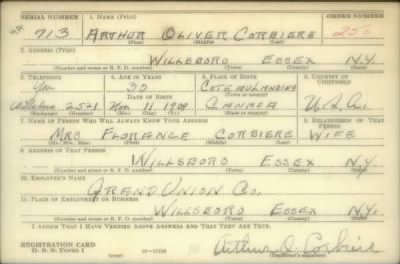 SERIAL NUMBER 1. NAME (Print) ORDER NUMBER
713 ARTHUR OLIVER CORBIERE 256
(First) (Middle) (Last)
2. ADDRESS (Print)
WILLSBORO ESSEX N.Y.
(Number and street or R. F. D. number) (Town) (County) (State)
3. TELEPHONE 4. AGE IN YEARS 5. PLACE OF BIRTH 6. COUNTRY OF CITIZENSHIP
Yes 30 COTEAU LANDING
DATE OF BIRTH (Town or county)
Willsboro 2521 Nov 11 1909 CANADA U.S.A.
(Exchange) (Number) (Mo.) (Day) (Yr.) (State or country)
7. NAME OF PERSON WHO WILL ALWAYS KNOW YOUR ADDRESS 8. RELATIONSHIP OF THAT PERSON
MRS FLORANCE CORBIERE WIFE
(Mr., Mrs., Miss) (First) (Middle) (Last)
9. ADDRESS OF THAT PERSON
WILLSBORO ESSEX N.Y.
(Number and street or R. F. D. number) (Town) (County) (State)
10. EMPLOYER'S NAME
GRAND UNION CO.
11. PLACE OF EMPLOYMENT OR BUSINESS
WILLSBORO ESSEX N.Y.
(Number and street or R. F. D. number) (Town) (County) (State)
I AFFIRM THAT I HAVE VERIFIED ABOVE ANSWERS AND THAT THEY ARE TRUE.
REGISTRATION CARD
D. S. S. Form 1 (over) Arthur O. Corbiere
(Registrant's signature)